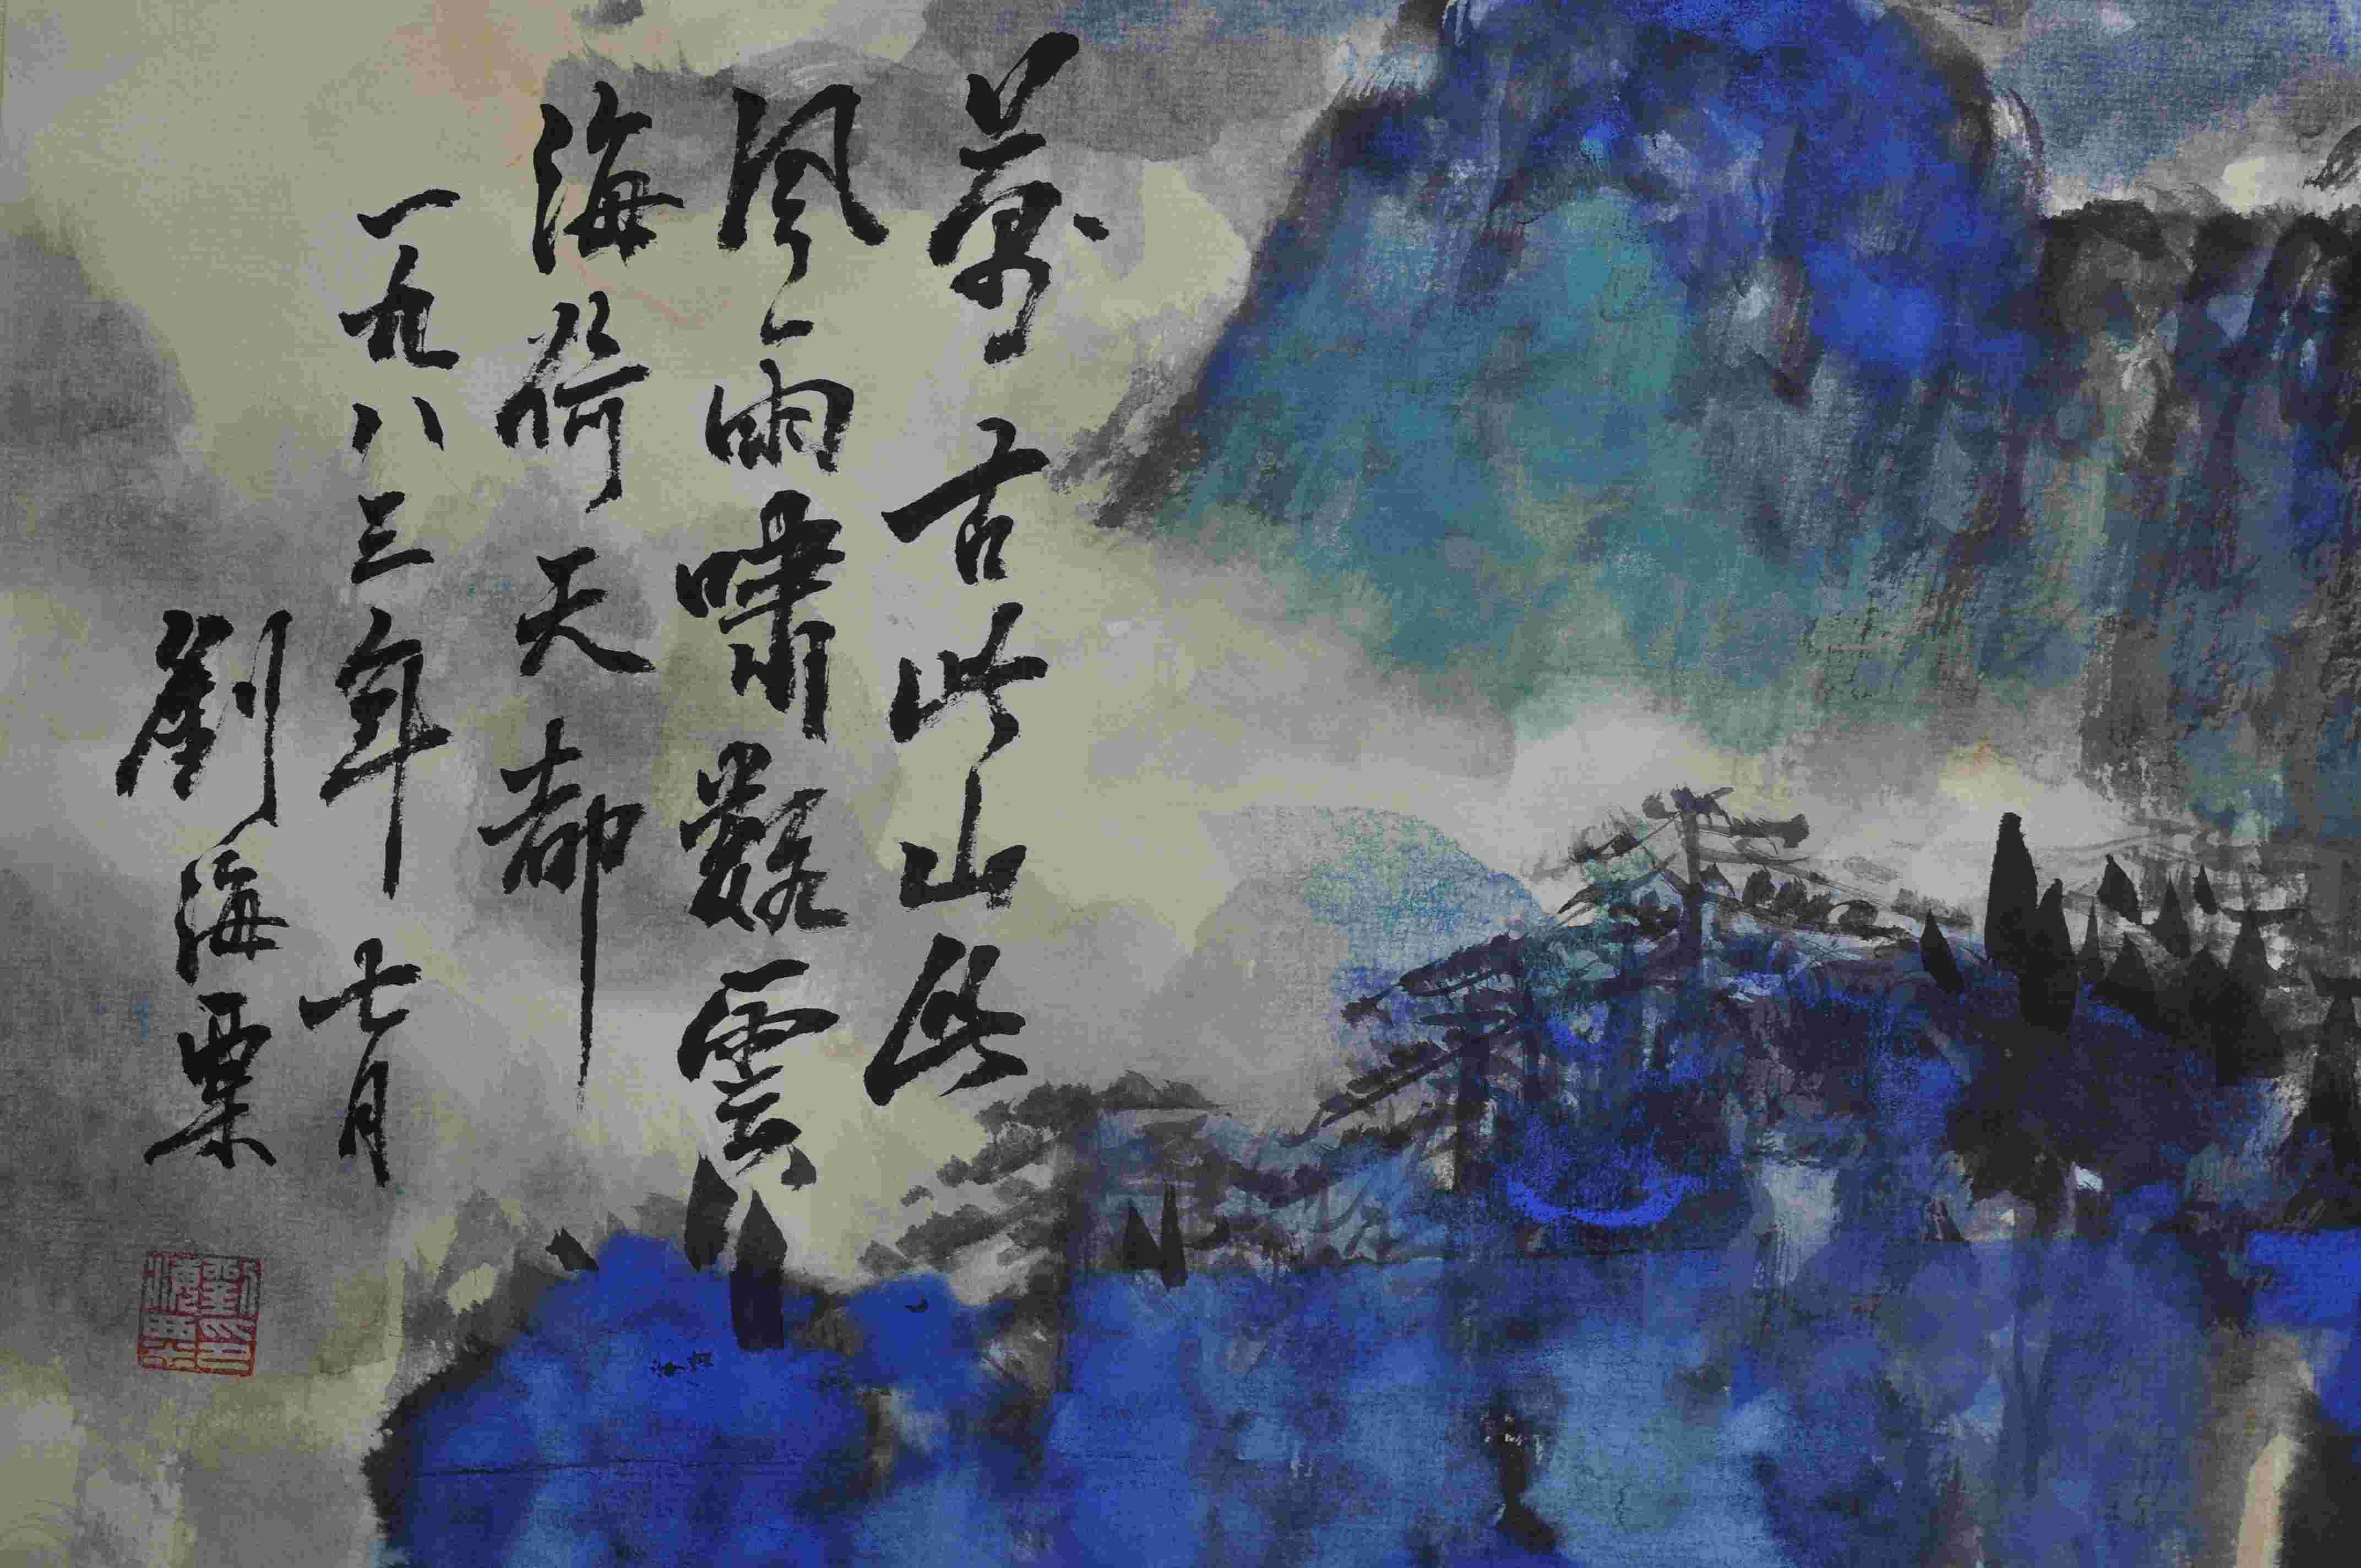 萬古此山此
風雨嘯雲
海荷天都
一九八三年七月
劉海粟
劉印海粟